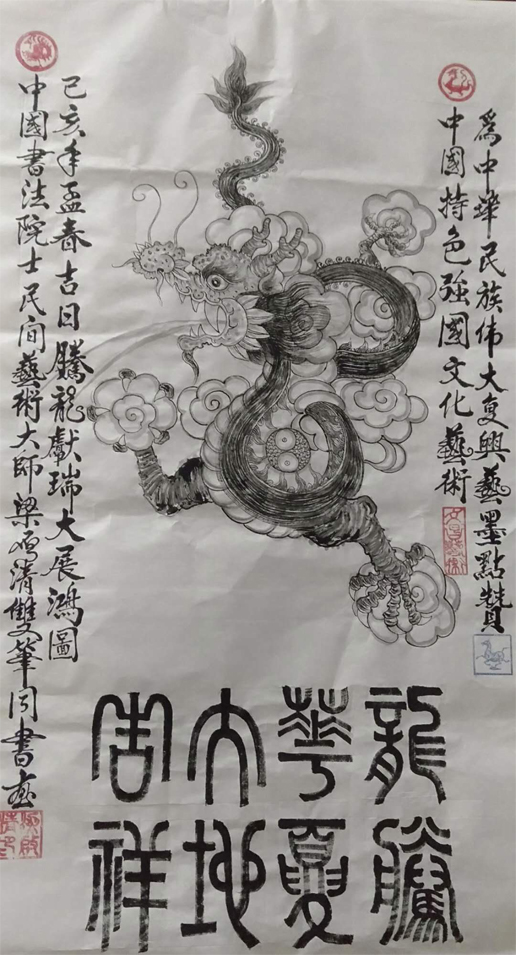 爲中華民族伟大复興藝墨點贊
中國特色强國文化藝術
己亥年孟春吉日騰龍獻瑞大展鴻圖
中國書法院士民间藝術大師梁清雙筆同書画
龍騰
華夏
大地
吉祥